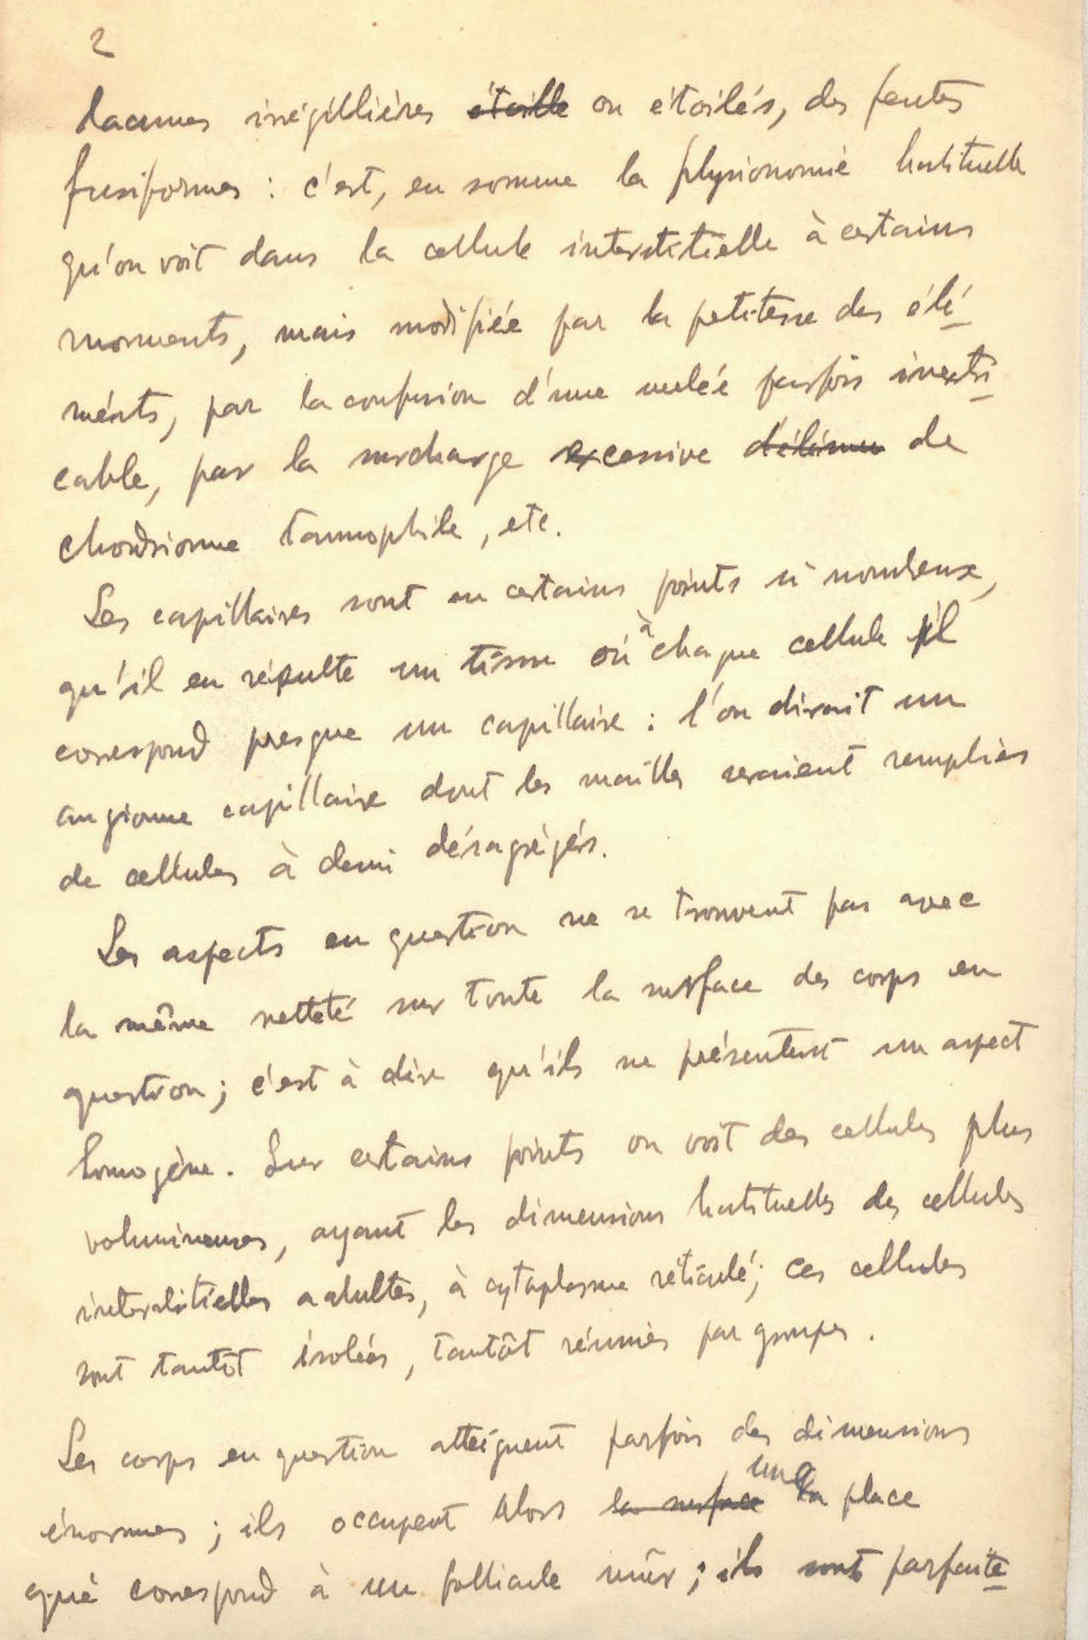 2
lacunes irrégullières étoille ou étoilés, des fentes
fusiformes : c'est, en somme la physionomie habituelle
qu'on voit dans la cellule interstitielle à certains
moments, mais modifiée par la petitesse des élé-
ments, par la confusion d'une mêlée parfois inextri-
cable, par la surcharge excessive d'élémen de
chondriome tannophile, etc.
Les capillaires sont en certains points si nombeux,
qu'il en résulte un tissu où à chaque cellule il
correspond presque un capillaire : l'on dirait un
angiome capillaire dont les mailles seraient remplies
de cellules à demi désagrégés.
Les aspects en question ne se trouvent pas avec
la même netteté sur toute la surface des corps en
question ; c'est à dire qu'ils ne présentent un aspect
homogène. Sur certains points on voit des cellules plus
volumineuses, ayant les dimensions habituelles des cellules
interstitielles adultes, à cytoplasme réticulé ; ces cellules
sont tantôt isolées, tantôt réunies par groupes.
Les corps en question atteignent parfois des dimensions
énormes ; ils occupent alors la surface une la place
qui correspond à un follicule mûr ; ils sont parfaite-